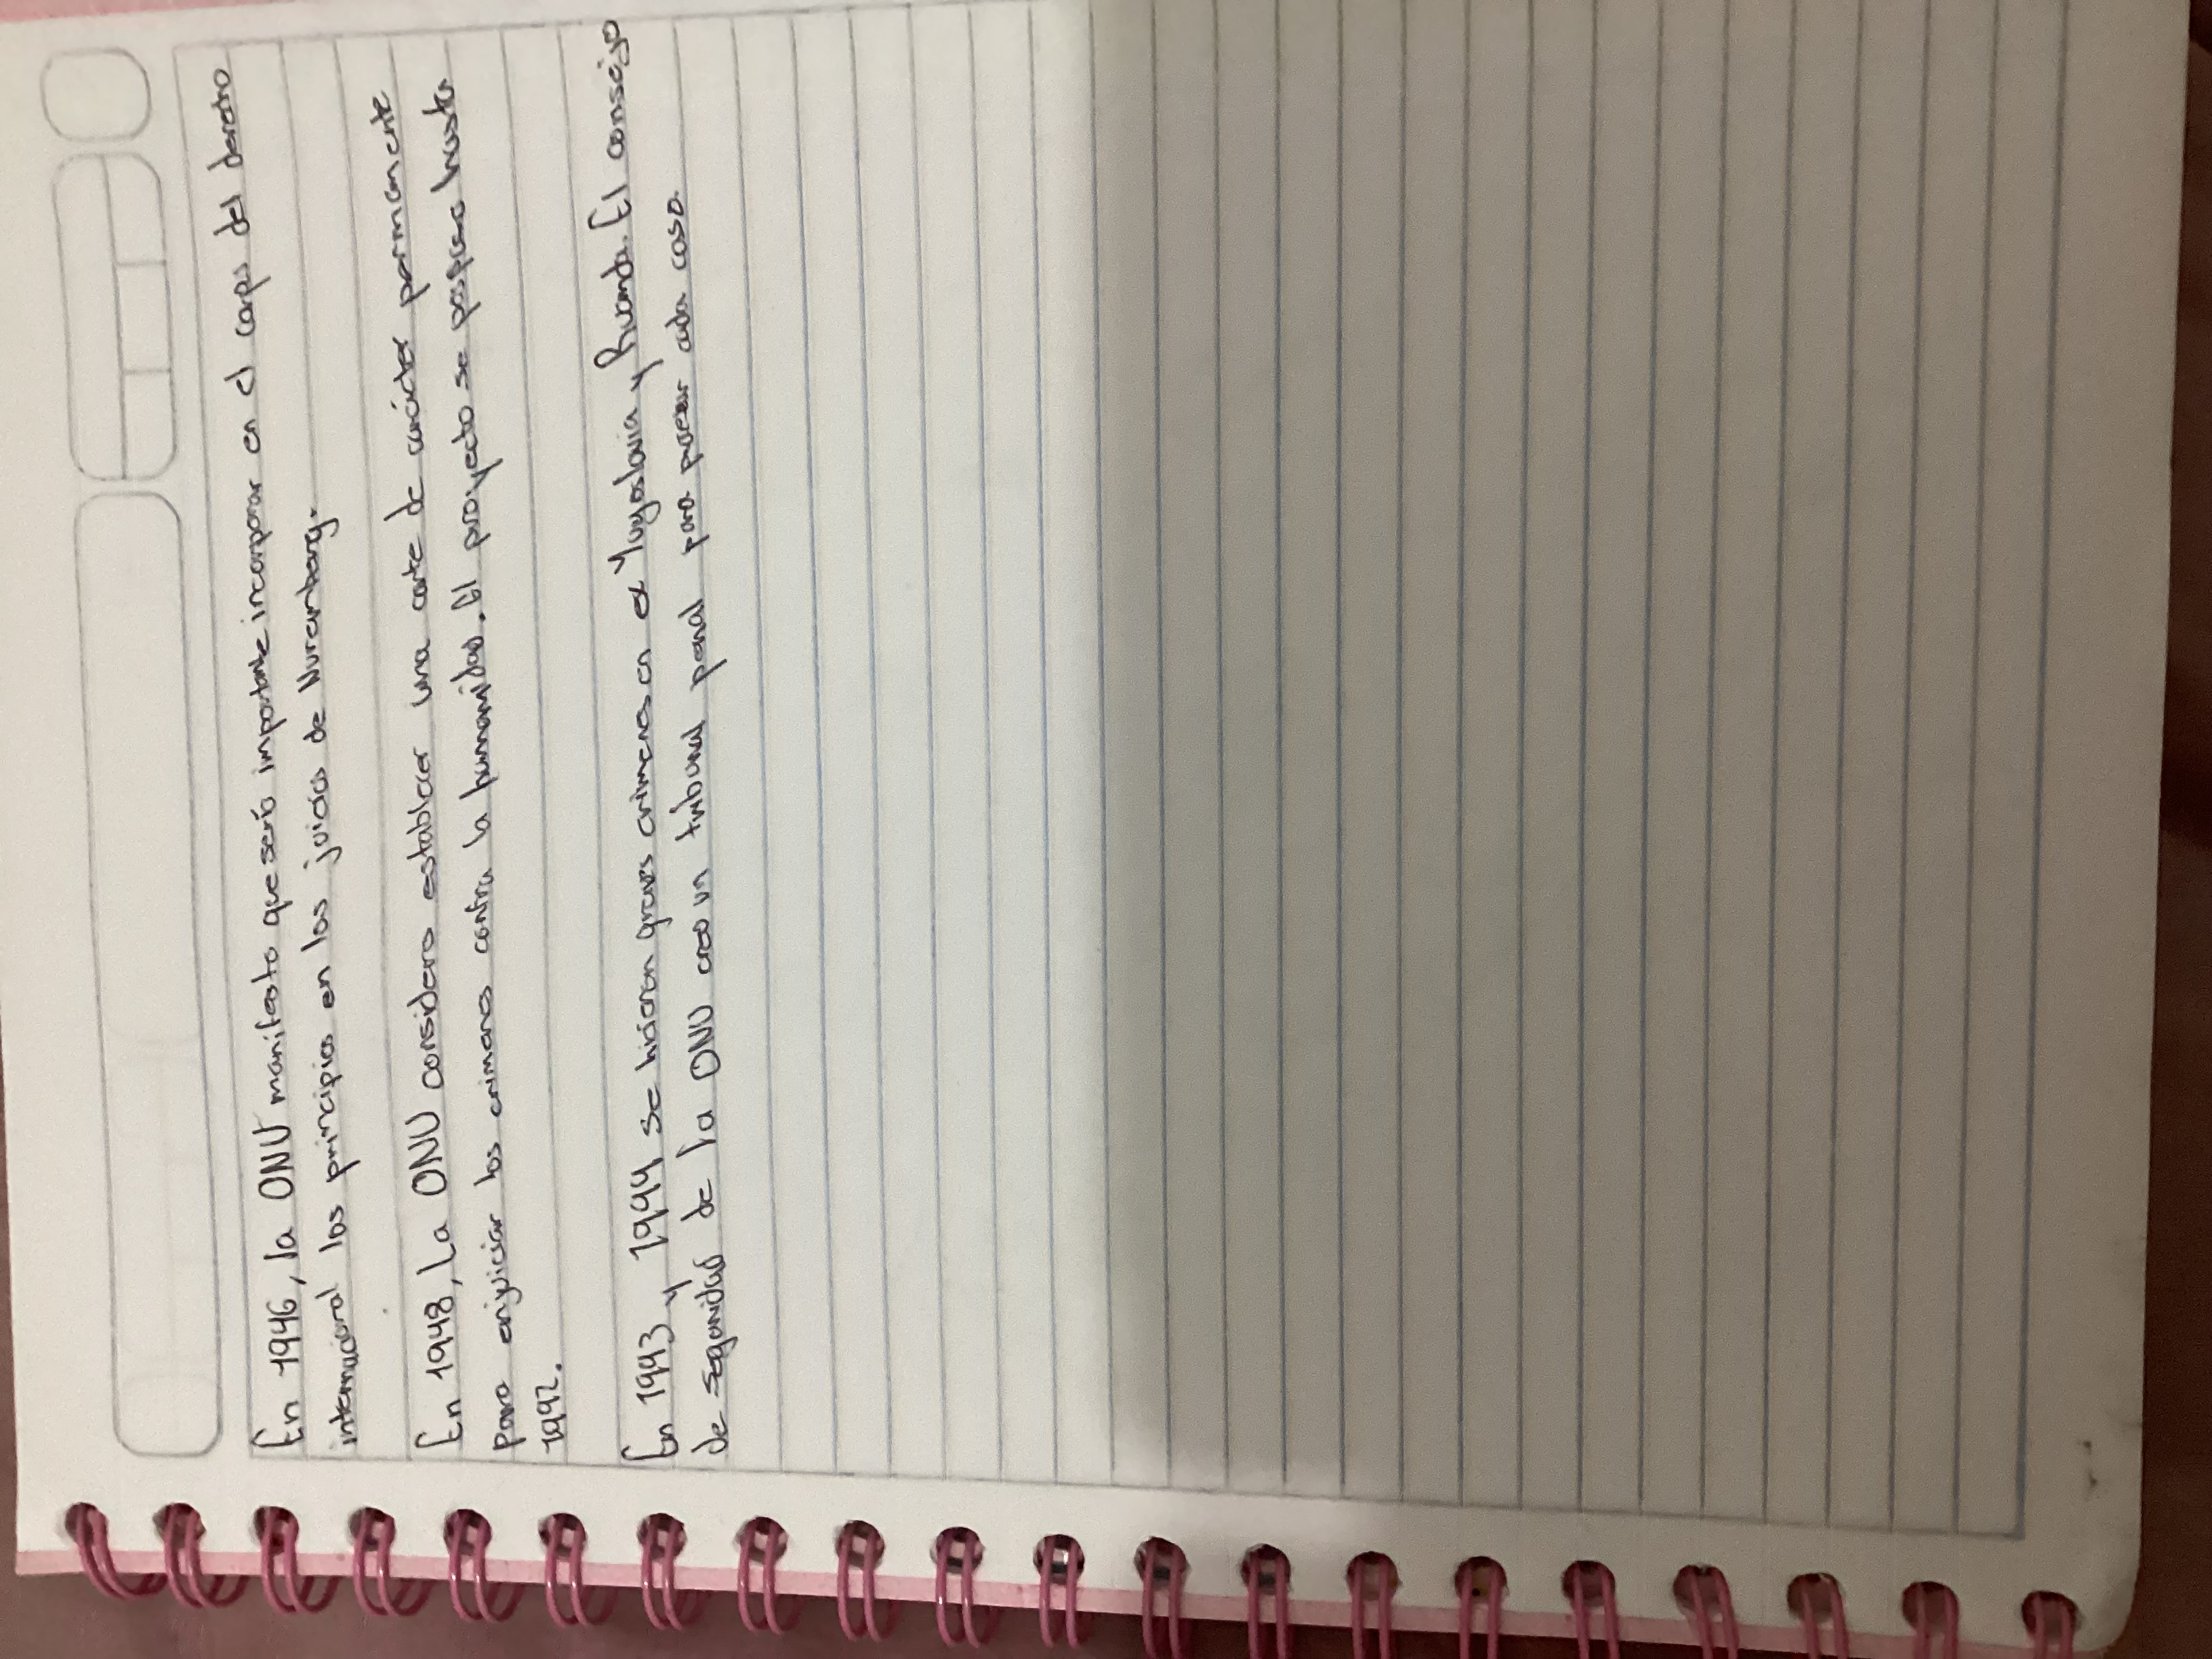 En 1946, la ONU manifesto que sería importante incorporar en el corpus del derecho
internacional los principios en los juicios de Nuremberg.
En 1948, La ONU considero establecer una corte de carácter permanente
para enjuiciar los crimenes contra la humanidad. El proyecto se pospuso hasta
1992.
En 1993 y 1994 se hicieron graves crimenes en ex Yugoslavia y Rwanda. El consejo
de seguridad de la ONU creo un tribunal penal para procesar cada caso.